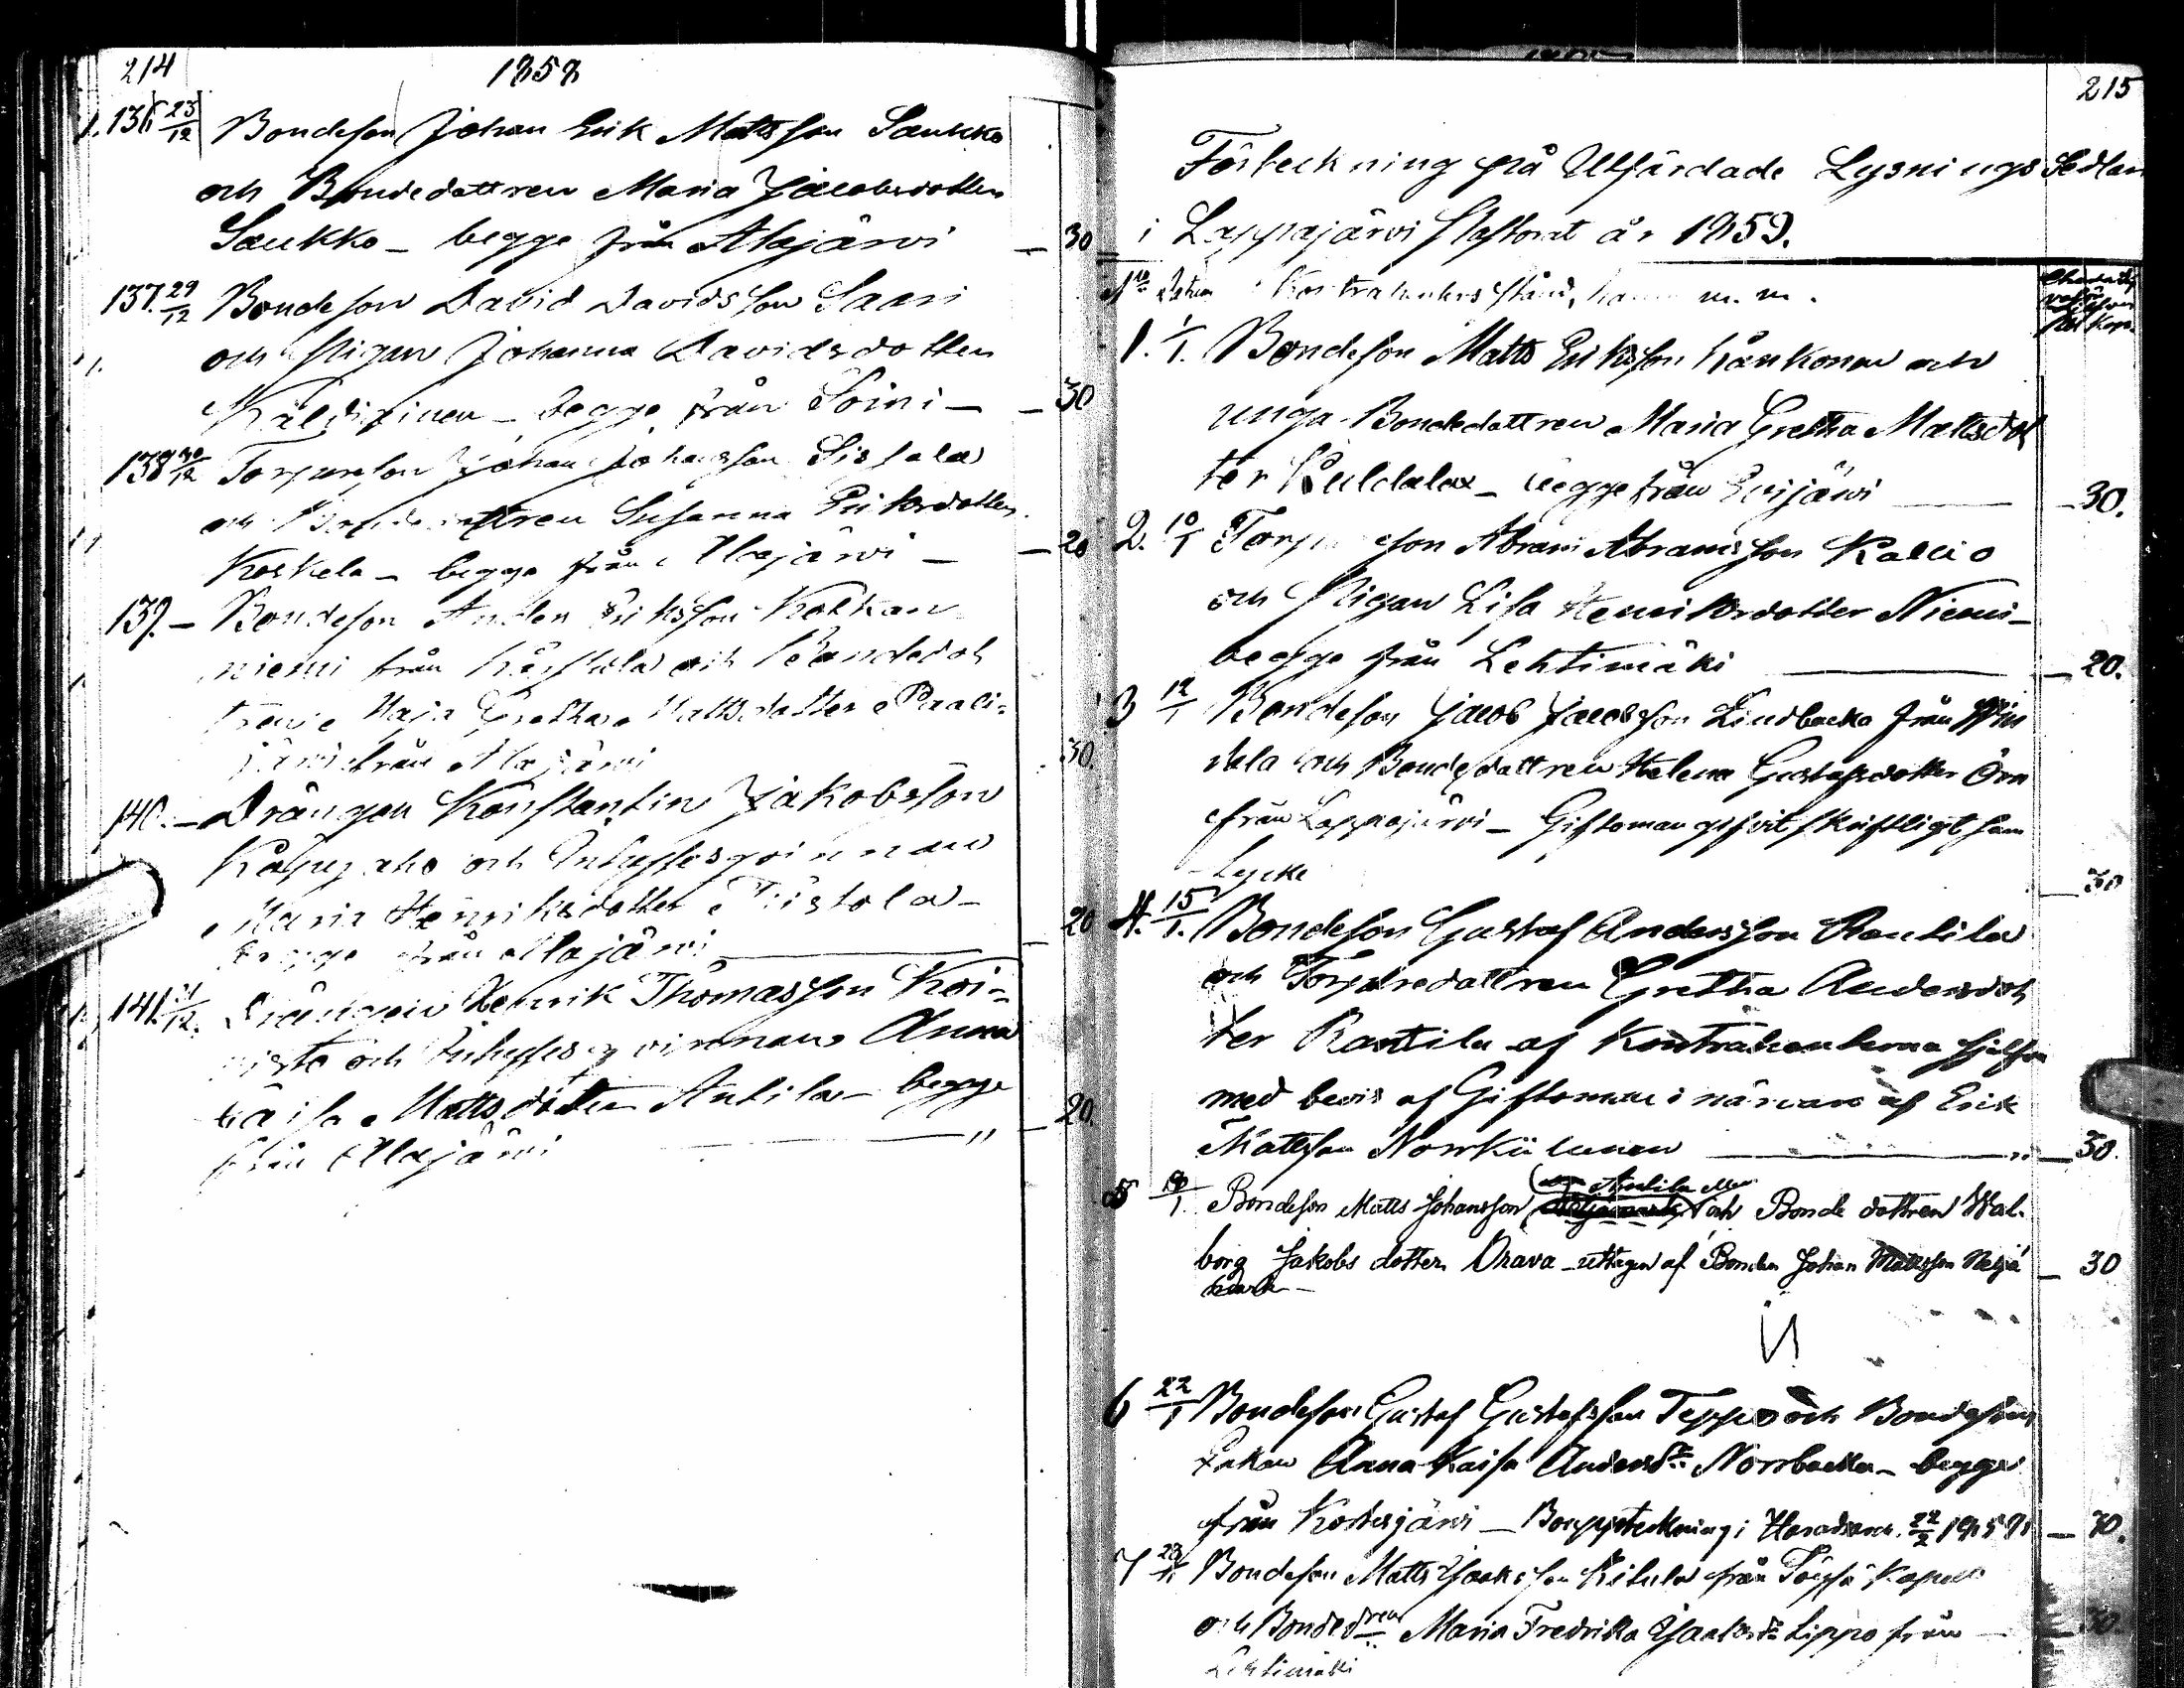 214
1858
136 23/12 Bondeson Johan Erik Mattsson Saukko
och Bondedottren Maria Jacobsdotter
Saukko – begge från Alajärvi – 30
137. 29/12 Bondeson David Davidsson Saari
och Pigan Johanna Davidsdotter
– begge från Soini – – 30
138 30/12 Torparson Johan Johansson Sissala
och Susanna Eriksdotter
Koskela – begge från Alajärvi – – 20
139. – Bondeson Anders Eriksson Kolkan
niemi från och Bondedot
tren Maja Gretha Mattsdotter Paali-
järvi från Alajärvi 30.
140. – Drängen Konstantin Jakobsson
och Inhysesqvinnan
Maria Henriksdotter
begge från Alajärvi – 20
141. 31/12. Drängen Henrik Thomasson Koi-
visto och Inhysesqvinnan Anna
Kaisa Mattsdotter Antila – begge
från Alajärvi – " – 20.
215
Förteckning på Utfärdade Lysnings Sedlar
i Lappajärvi Pastorat år 1859.
No Datum Kontrahenters stånd, namn m. m.
1. 1/1. Bondeson Matts Eriksson Känkonen och
unga Bondedottren Maria Gretha Mattsdot
ter Kuldala – begge från Evijärvi – 30.
2. 10/1 Torpareson Abram Abramsson Kallio
och Pigan Lisa Henriksdotter Niemi –
begge från Lehtimäki – 20.
3 12/1 Bondeson Jacob Jacobsson Lindbacka från Vin
dala och Bondedottren Helena Gustafsdotter Örn
från Lappajärvi – Giftoman gifvit skriftligt sam
tycke – 30
4. 15/1. Bondeson Gustaf Andersson Rantila
och Torparedottren Gretha Andersdot
ter Rantila af Kontrahenterna sjelfva
med bevis af Giftoman i närvaro af Erik
Mattsson Norrkiilunen – " – 30.
5 19/1. Bondeson Matts Johansson och Bonde dottren Wal-
borg Jakobs dotter Orava – uttagen af Bonden Johan Mattsson Neljä
mark – – 30
6 22/1 Bondeson Gustaf Gustafsson Teppo och Bondesons
Enkan Anna Kaisa Andersdr Norrbacka – begge
från Kortesjärvi – Bouppteckning i 22/2 1858 – 30.
7 23/1 Bondeson Matts Jaaksson Ritula från Töysä Kapell
och Bondedren Maria Fredrika Jaaksdr Lippo från – 30.
Lehtimäki